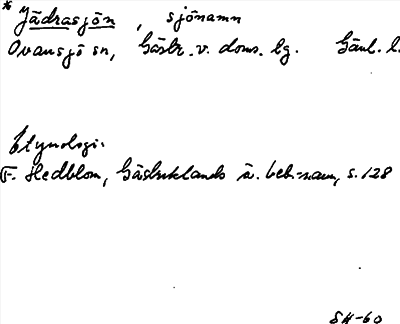 * Jädrasjön, sjönamn
Ovansjö sn, Gästr. v. doms. lg. Gävl. l.
Etymologi.
F. Hedblom, Gästriklands ä. beb.-namn, s. 128
SH-60